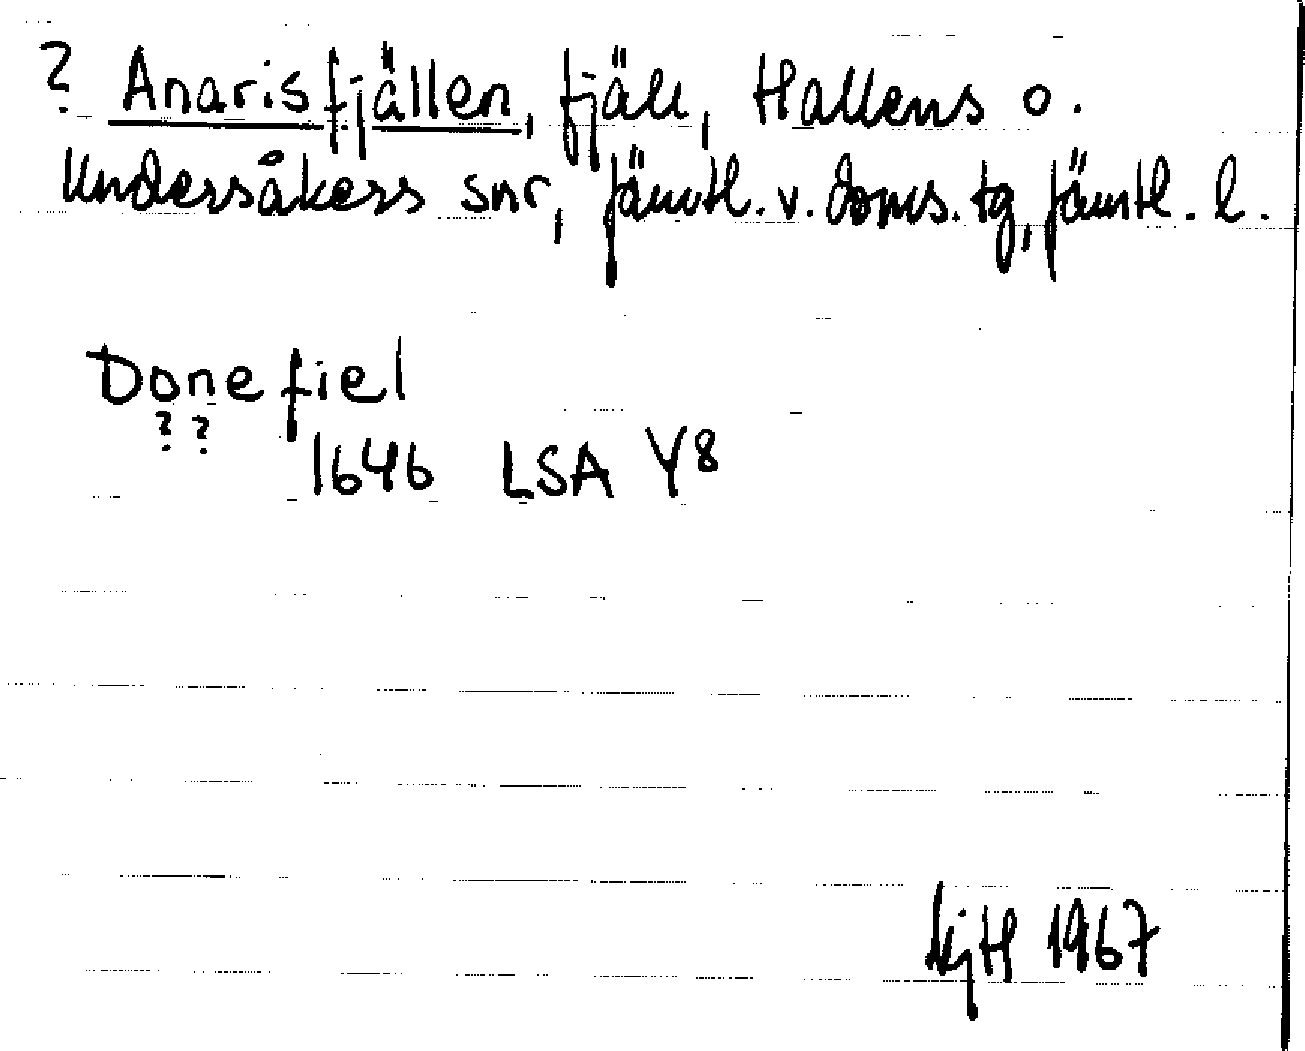 ? Anarisfjällen, fjäll, Hallens o.
Undersåkers snr, Jämtl. v. doms. tg, Jämtl. l.
Donefiel
? ?
1646 LSA Y8
1967